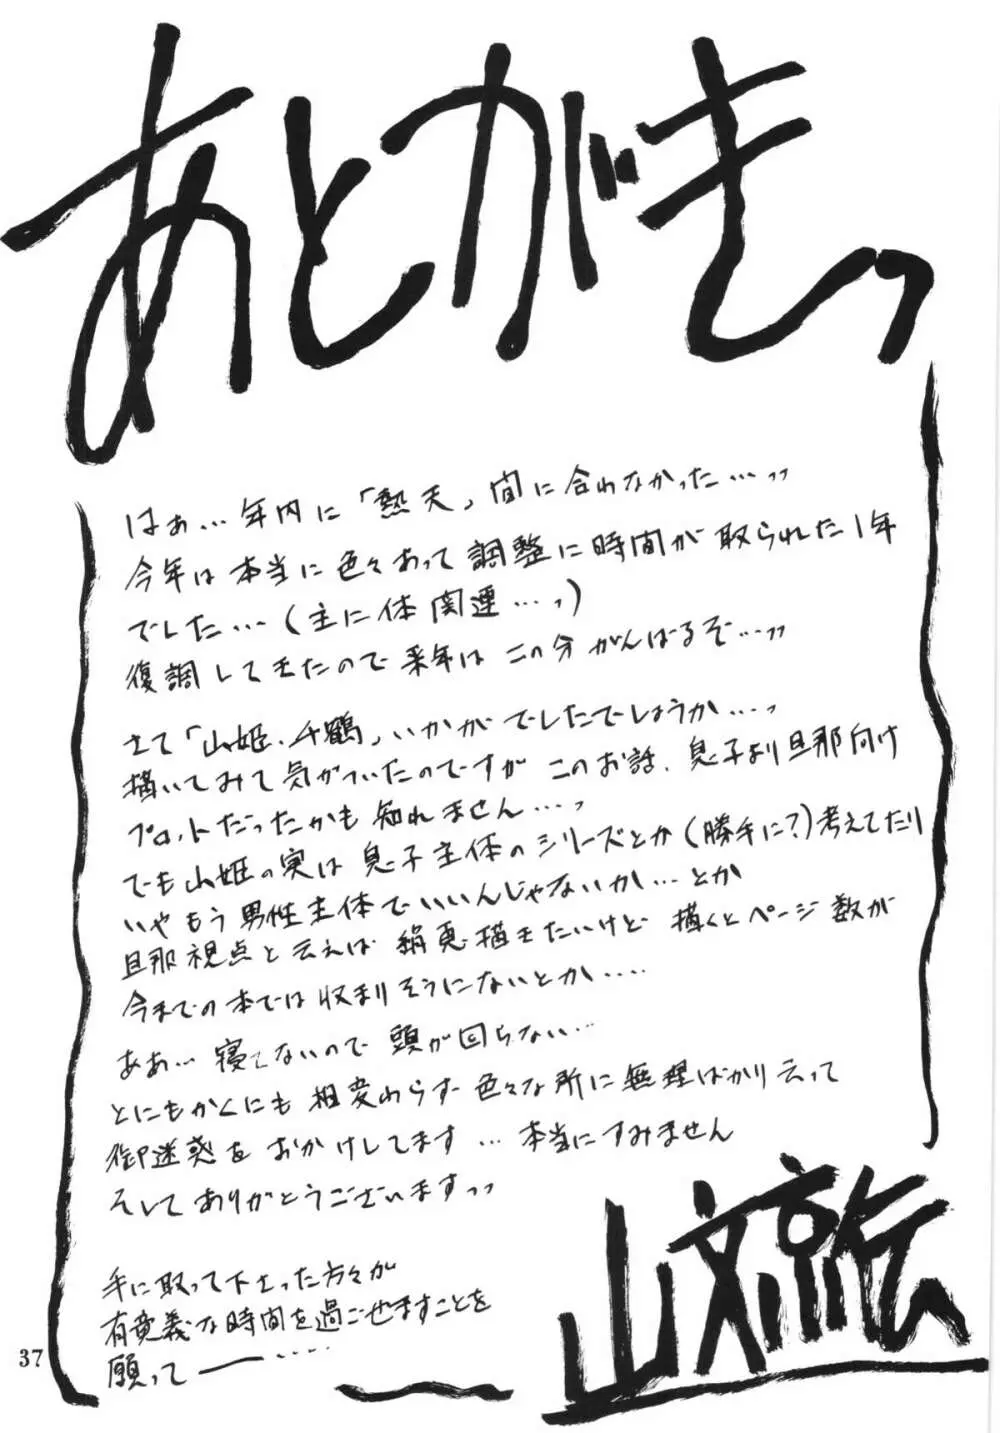 あとがきっ
はぁ…年内に「熱天」間に合わなかった…っっ
今年は本当に色々あって調整に時間が取られた1年
でした…(主に体関連…っ)
復調してきたので来年はこの分がんばるぞ…っっ
さて「山姫・千鶴」いかがでしたでしょうか…っ
描いてみて気がついたのですがこのお話、息子より旦那向け
プロットだったかも知れません…っ
でも山姫の実は息子主体のシリーズとか(勝手に?)考えてたり
いやもう男性主体でいいんじゃないか…とか
旦那視点と云えば絹恵描きたいけど描くとページ数が
今までの本では収まりそうにないとか‥‥
ああ…寝てないので頭が回らない…
とにもかくにも相変わらず色々な所に無理ばかり云って
御迷惑をおかけしてます…本当にすみません
そしてありがとうございますっっ
手に取って下さった方々が
有意義な時間を過ごせますことを
願って――‥‥
山文京伝
37